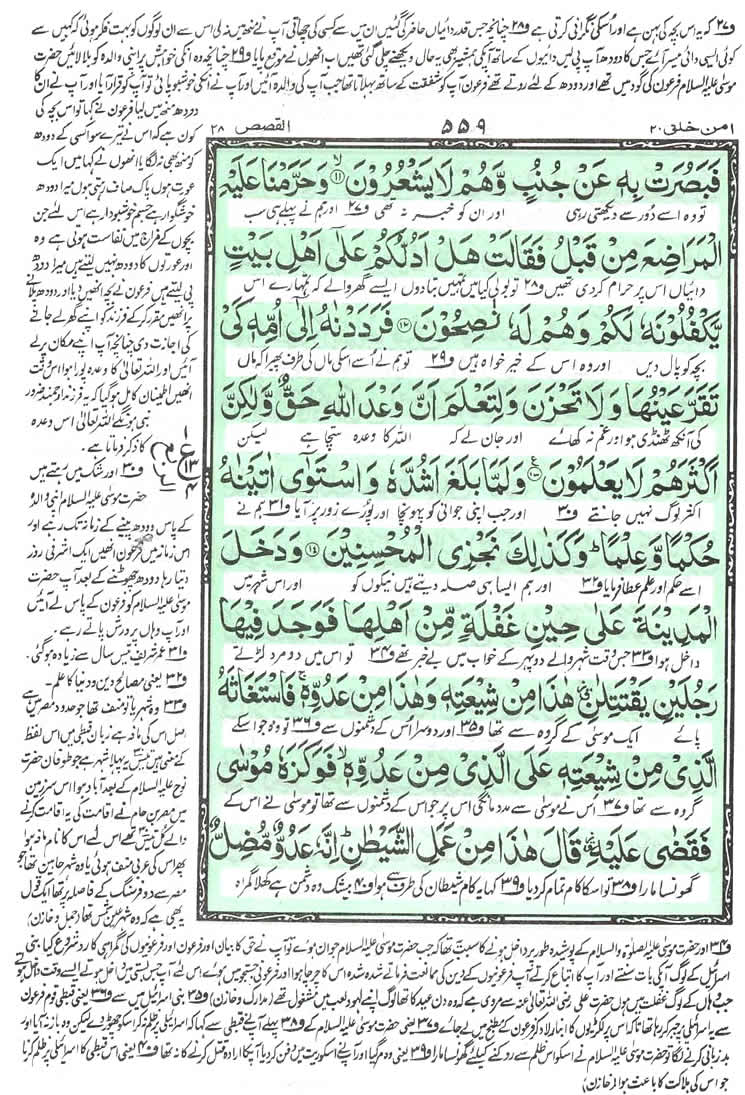 و۲۷ کہ یہ اس بچہ کی بہن ہے اور اسکی نگرانی کرتی ہے و۲۸ چنانچہ جس قدر دائیاں حاضر کی گئیں ان میں سے کسی کی چھاتی آپ نے منھ میں نہ لی اس سے ان لوگوں کو بہت فکر ہوئی کہ کہیں سے
کوئی ایسی دائی میسر آئے جس کا دودھ آپ پی لیں دائیوں کے ساتھ آپکی ہمشیر بھی یہ حال دیکھنے چلی گئی تھیں اب انھوں نے موقع پایا و۲۹ چنانچہ وہ انکی خواہش پر اپنی والدہ کو بلا لائیں حضرت
موسیٰ علیہ السلام فرعون کی گود میں تھے اور دودھ کے لئے روتے تھے فرعون آپ کو شفقت کے ساتھ بہلاتا تھا جب آپ کی والدہ آئیں اور آپ نے انکی خوشبو پائی تو آپ کو قرار آیا اور آپ نے ان کا
دودھ منھ میں لیا فرعون نے کہا تو اس بچہ کی
امن خلق ۲۰
۵۵۹
القصص ۲۸
فَبَصُرَتْ بِهٖ عَنْ جُنُبٍ وَّهُمْ لَا يَشْعُرُوْنَ ۱۱ وَحَرَّمْنَا عَلَيْهِ
تو وہ اسے دور سے دیکھتی رہی اور ان کو خبر نہ تھی و۲۷ اور ہم نے پہلے ہی سب
الْمَرَاضِعَ مِنْ قَبْلُ فَقَالَتْ هَلْ اَدُلُّكُمْ عَلٰٓى اَهْلِ بَيْتٍ
دائیاں اس پر حرام کردی تھیں و۲۸ تو بولی کیا میں تمہیں بتادوں ایسے گھر والے کہ تمہارے اس
يَّكْفُلُوْنَهٗ لَكُمْ وَهُمْ لَهٗ نٰصِحُوْنَ ۱۲ فَرَدَدْنٰهُ اِلٰٓى اُمِّهٖ كَىْ
بچہ کو پال دیں اور وہ اس کے خیر خواہ ہیں و۲۹ تو ہم نے اُسے اسکی ماں کی طرف پھیرا کہ ماں
تَقَرَّ عَيْنُهَا وَلَا تَحْزَنَ وَلِتَعْلَمَ اَنَّ وَعْدَ اللّٰهِ حَقٌّ وَّلٰكِنَّ
کی آنکھ ٹھنڈی ہو اور غم نہ کھائے اور جان لے کہ اللہ کا وعدہ سچا ہے لیکن
اَكْثَرَهُمْ لَا يَعْلَمُوْنَ ۱۳ وَلَمَّا بَلَغَ اَشُدَّهٗ وَاسْتَوٰٓى اٰتَيْنٰهُ
اکثر لوگ نہیں جانتے و۳۰ اور جب اپنی جوانی کو پہونچا اور پورے زور پر آیا و۳۱ ہم نے
حُكْمًا وَّعِلْمًا ؕ وَكَذٰلِكَ نَجْزِى الْمُحْسِنِيْنَ ۱۴ وَدَخَلَ
اسے حکم اور علم عطا فرمایا و۳۲ اور ہم ایسا ہی صلہ دیتے ہیں نیکوں کو اور اس شہر میں
الْمَدِيْنَةَ عَلٰى حِيْنِ غَفْلَةٍ مِّنْ اَهْلِهَا فَوَجَدَ فِيْهَا
داخل ہوا و۳۳ جس وقت شہر والے دوپہر کے خواب میں بے خبر تھے و۳۴ تو اس میں دو مرد لڑتے
رَجُلَيْنِ يَقْتَتِلٰنِ هٰذَا مِنْ شِيْعَتِهٖ وَهٰذَا مِنْ عَدُوِّهٖ فَاسْتَغَاثَهُ
پائے ایک موسیٰ کے گروہ سے تھا و۳۵ اور دوسرا اُس کے دشمنوں سے و۳۶ تو وہ جو اسکے
الَّذِىْ مِنْ شِيْعَتِهٖ عَلَى الَّذِىْ مِنْ عَدُوِّهٖ فَوَكَزَهٗ مُوْسٰى
گروہ سے تھا و۳۷ اُس نے موسیٰ سے مدد مانگی اس پر جو اس کے دشمنوں سے تھا تو موسیٰ نے اس کے
فَقَضٰى عَلَيْهِ قَالَ هٰذَا مِنْ عَمَلِ الشَّيْطٰنِ ؕ اِنَّهٗ عَدُوٌّ مُّضِلٌّ
گھونسا مارا و۳۸ تو اسکا کام تمام کردیا و۳۹ کہا یہ کام شیطان کی طرف سے ہوا و۴۰ بیشک وہ دشمن ہے کھلا گمراہ
کون ہے کہ اس نے تیرے سوا کسی کے دودھ
کو منھ بھی نہ لگایا انھوں نے کہا میں ایک
عورت ہوں پاک صاف رہتی ہوں میرا دودھ
خوشگوار ہے جسم خوشبودار ہے اس لئے جن
بچوں کے مزاج میں نفاست ہوتی ہے وہ
اور عورتوں کا دودھ نہیں لیتے ہیں میرا دودھ
پی لیتے ہیں فرعون نے بچہ انھیں دیا اور دودھ پلانے
پر انھیں مقرر کرکے فرزند کو اپنے گھر لے جانے
کی اجازت دی چنانچہ آپ اپنے مکان پر لے
آئیں اور اللہ تعالیٰ کا وعدہ پورا ہوا اس وقت
انھیں اطمینان کامل ہوگیا کہ یہ فرزند ارجمند ضرور
نبی ہونگے اللہ تعالیٰ اس وعدہ
کا ذکر فرماتا ہے۔
و۳۰ اور شک میں رہتے ہیں
حضرت موسیٰ علیہ السلام اپنی والدہ
کے پاس دودھ پینے کے زمانہ تک رہے اور
اس زمانہ میں فرعون انھیں ایک اشرفی روز
دیتا رہا دودھ چھوٹنے کے بعد آپ حضرت
موسیٰ علیہ السلام کو فرعون کے پاس لے آئیں
اور آپ وہاں پرورش پاتے رہے۔
و۳۱ عمر شریف تیس سال سے زیادہ ہوگئی۔
و۳۲ یعنی مصالح دین و دنیا کا علم۔
و۳۳ وہ شہر یا تو منف تھا جو حدود مصر میں ہے
اصل اس کی مافہ ہے زبان قبطی میں اس لفظ
کے معنی ہیں تیس یہ پہلا شہر ہے جو طوفان حضرت
نوح علیہ السلام کے بعد آباد ہوا اس سرزمین
میں مصر بن حام نے اقامت کی یہ اقامت کرنے
والے کل تیس تھے اس لئے اس کا نام مافہ ہوا
پھر اس کی عربی منف ہوئی یا وہ شہر حابین تھا جو
مصر سے دو فرسنگ کے فاصلہ پر تھا ایک قول
یہ بھی ہے کہ وہ شہر عین شمس تھا (جمل و خازن)
و۳۴ اور حضرت موسیٰ علیہ الصلوٰۃ والسلام کے پوشیدہ طور پر داخل ہونے کا سبب یہ تھا کہ جب حضرت موسیٰ علیہ السلام جوان ہوئے تو آپ نے حق کا بیان اور فرعون اور فرعونیوں کی گمراہی کا رد شروع کیا بنی
اسرائیل کے لوگ آپکی بات سنتے اور آپ کا اتباع کرتے آپ فرعونیوں کے دین کی ممانعت فرماتے شدہ شدہ اس کا چرچا ہوا اور فرعونی جستجو میں ہوئے اس لئے آپ جس بستی میں داخل ہوتے ایسے وقت داخل ہوتے
جب وہاں کے لوگ غفلت میں ہوں حضرت علی رضی اللہ تعالیٰ عنہ سے مروی ہے کہ وہ دن عید کا تھا لوگ اپنے لہو و لعب میں مشغول تھے (مدارک و خازن) و۳۵ بنی اسرائیل میں سے و۳۶ یعنی قبطی قوم فرعون
سے یہ اسرائیلی پر جبر کر رہا تھا تاکہ اس پر لکڑیوں کا انبار لاد کر فرعون کے مطبخ میں لے جائے و۳۷ یعنی حضرت موسیٰ علیہ السلام کے و۳۸ پہلے آپ نے قبطی سے کہا کہ اسرائیلی پر ظلم نہ کر اسکو چھوڑ دے لیکن وہ باز نہ آیا اور
بدزبانی کرنے لگا تو حضرت موسیٰ علیہ السلام نے اسکو اس ظلم سے روکنے کیلئے گھونسا مارا و۳۹ یعنی وہ مرگیا اور آپ نے اسکو ریت میں دفن کردیا آپکا ارادہ قتل کرنے کا نہ تھا و۴۰ یعنی اس قبطی کا اسرائیلی پر ظلم کرنا
جو اس کی ہلاکت کا باعث ہوا (خازن)